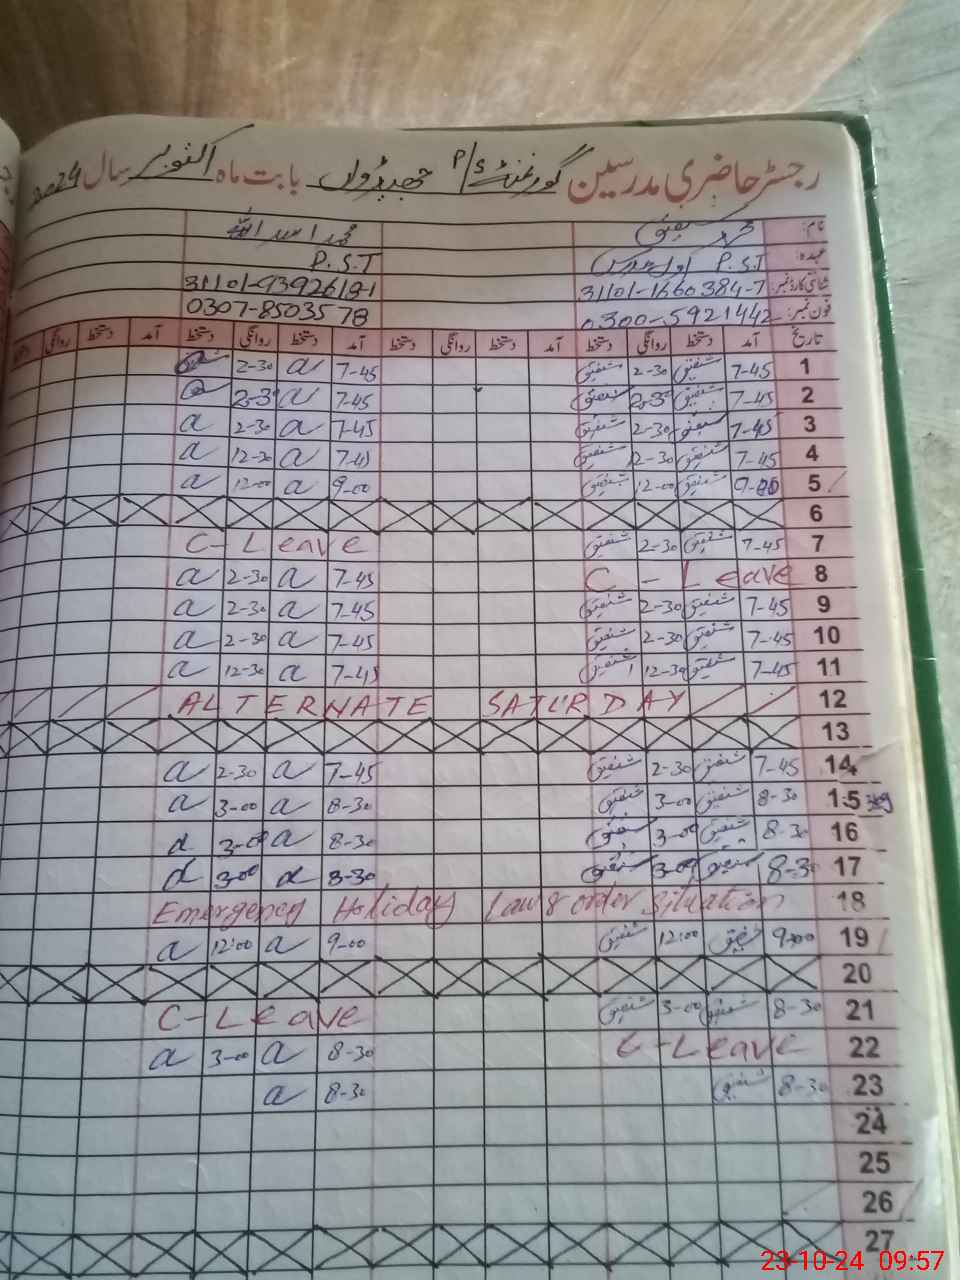 رجسٹر حاضری مدرسین گورنمنٹ P/S بابت ماہ اکتوبر سال 2024
نام: محمد شفیق محمد اسد اللہ
عہدہ: P.S.T اول مدرس P.S.T
شناختی کارڈ نمبر: 31101-1660384-7
فون نمبر: 0300-5921442 0307-8503578
تاریخ آمد دستخط روانگی دستخط آمد دستخط روانگی دستخط آمد دستخط روانگی دستخط آمد دستخط روانگی
1 7-45 شفیق 2-30 شفیق 7-45 a 2-30 a
2 7-45 شفیق 2-30 شفیق 7-45 a 2-30 a
3 7-45 شفیق 2-30 شفیق 7-45 a 2-30 a
4 7-45 شفیق 12-30 شفیق 7-45 a 12-30 a
5 9-00 شفیق 12-00 شفیق 9-00 a 12-00 a
6
7 7-45 شفیق 2-30 شفیق C-Leave
8 C-Leave 7-45 a 2-30 a
9 7-45 شفیق 2-30 شفیق 7-45 a 2-30 a
10 7-45 شفیق 2-30 شفیق 7-45 a 2-30 a
11 7-45 شفیق 12-30 شفیق 7-45 a 12-30 a
12 ALTERNATE SATURDAY
13
14 7-45 شفیق 2-30 شفیق 7-45 a 2-30 a
15 8-30 شفیق 3-00 شفیق 8-30 a 3-00 a
16 8-30 شفیق 3-00 شفیق 8-30 a 3-00 a
17 8-30 شفیق 3-00 شفیق 8-30 a 3-00 a
18 Emergency Holiday Law & order Situation
19 9-00 شفیق 12:00 شفیق 9-00 a 12:00 a
20
21 8-30 شفیق 3-00 شفیق C-Leave
22 C-Leave 8-30 a 3-00 a
23 8-30 شفیق 8-30 a
24
25
26
27
23-10-24 09:57